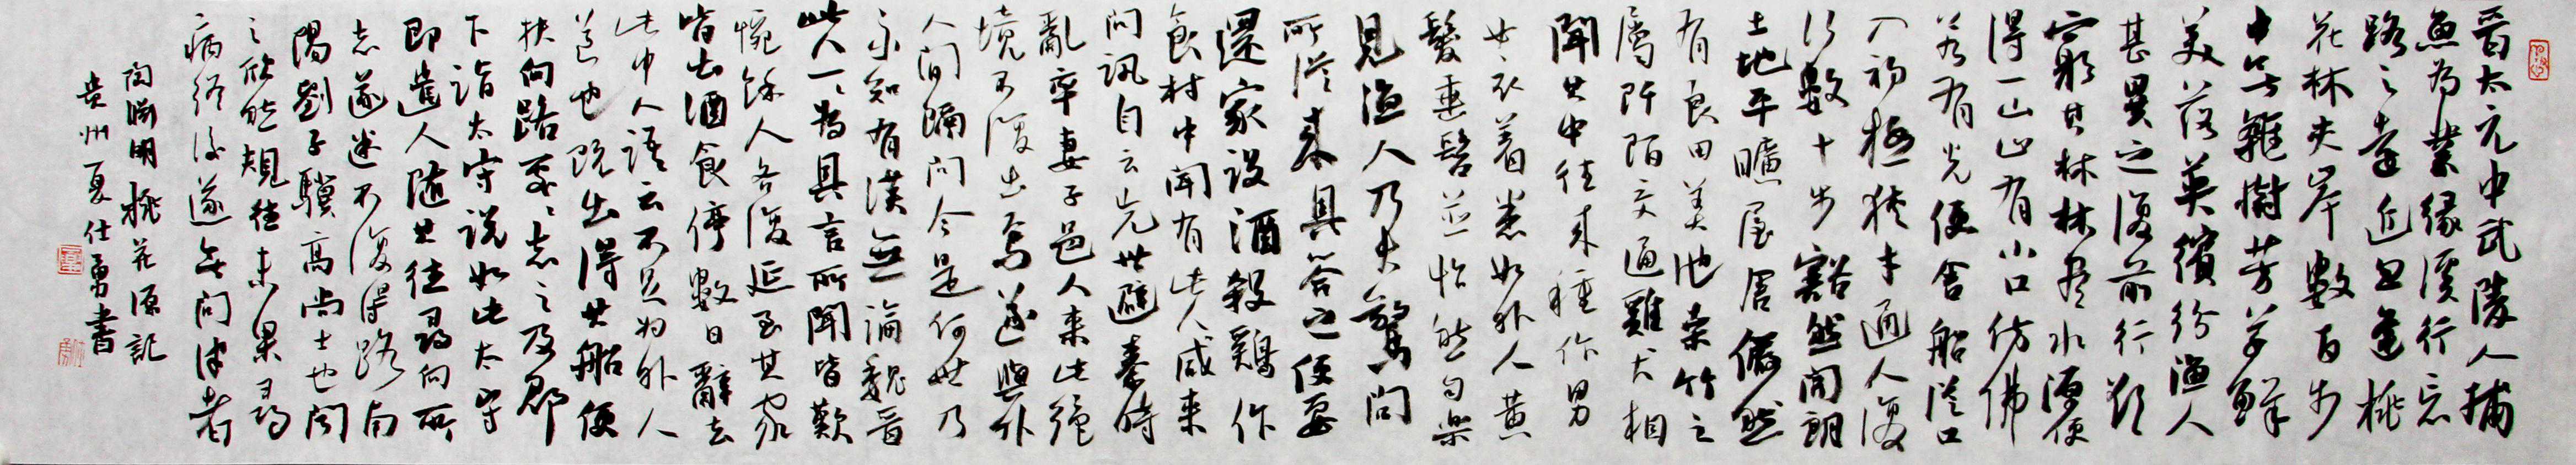 晋太元中武陵人捕
魚为業缘溪行忘
路之遠近忽逢桃
花林夹岸數百步
中無雜樹芳草鮮
美落英缤纷渔人
甚異之復前行欲
窮其林林尽水源便
得一山山有小口仿佛
若有光便舍船從口
入初極狭才通人復
行數十步豁然開朗
土地平曠屋舍儼然
有良田美池桑竹之
屬阡陌交通雞犬相
聞其中往来種作男
女衣着悉如外人黄
髮垂髫並怡然自樂
見渔人乃大驚问
所從来具答之便要
還家设酒殺鷄作
食村中闻有此人咸来
问讯自云先世避秦時
亂率妻子邑人来此绝
境不復出焉遂與外
人间隔问今是何世乃
不知有漢無論魏晋
此人一一為具言所聞皆歎
惋餘人各復延至其家
皆出酒食停數日辭去
此中人語云不足为外人
道也既出得其船便
扶向路處々志之及郡
下詣太守说如此太守
即遣人随其往尋向所
志遂迷不復得路南
陽劉子驥高尚士也闻
之欣然規往未果尋
病终後遂無问津者
陶渊明桃花源記
贵州夏仕勇書